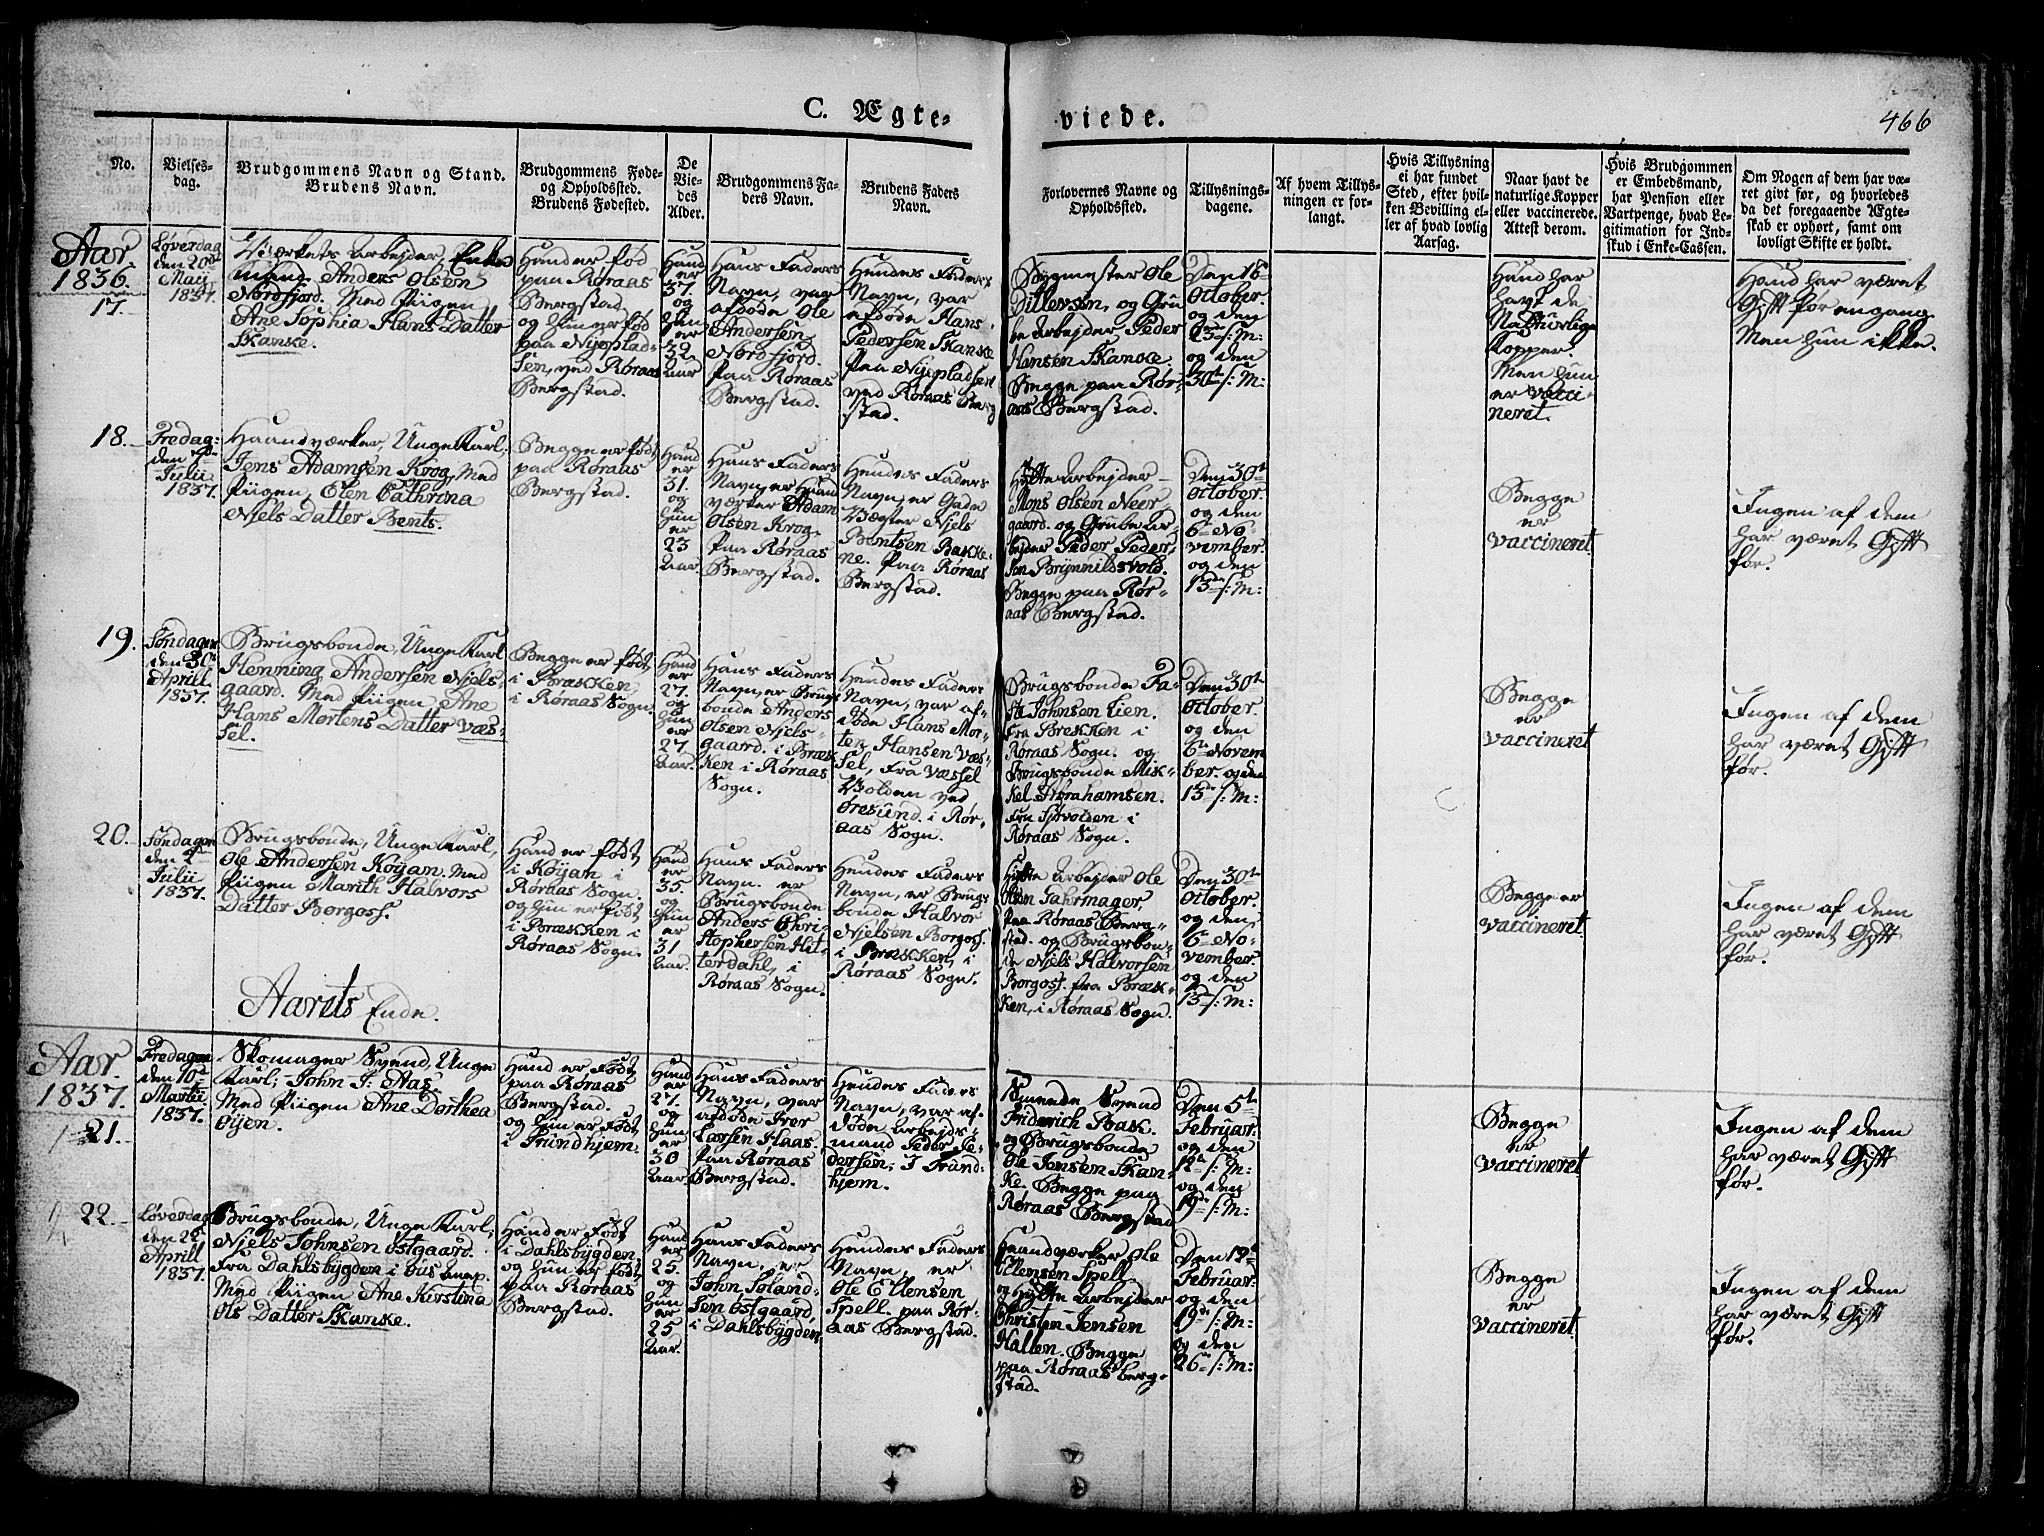 C. Ægte-
viede.
466
No.
Vielses-
dag.
Brudgommens Navn og Stand.
Brudens Navn.
Brudgommens Føde-
og Opholdssted.
Brudens Fødested.
De
Vie-
des
Alder.
Brudgommens Fa-
ders Navn.
Brudens Faders
Navn.
Forlovernes Navne og
Opholdssted.
Tillysnings-
dagene.
Af hvem Tillys-
ningen er for-
langt.
Hvis Tillysning
ei har fundet
Sted, efter hvil-
ken Bevilling el-
ler af hvad lovlig
Aarsag.
Naar havt de
naturlige Kopper
eller vaccinerede.
Attest derom.
Hvis Brudgommen
er Embedsmand,
har Pension eller
Vartpenge, hvad Le-
gitimation for Ind-
skud i Enke-Cassen.
Om Nogen af dem har væ-
ret givt før, og hvorledes
da det foregaaende Ægte-
skab er ophørt, samt om
lovligt Skifte er holdt.
Aar.
1836.
17.
Løverdag
den 20de
Maij
1837.
Værkets Arbejder, Enke-
mand Anders Olsen
Nordfjord. Med Piigen
Ane Sophia Hans Datter
Skanke.
Hand er fød
paa Røraas
Bergstad.
og Hun er fød
paa Nyeplad-
sen, ved Røraas
Bergstad.
Hand
er
37.
og
Hun
er
32.
Aar
Hans Faders
Navn, var
afdøde Ole
Andersen
Nordfjord.
paa Røraas
Bergstad.
Hendes Faders
Navn, var
afdøde Hans
Pedersen Skanke
paa Nyepladsen
ved Røraas Berg
stad.
Bygmester Ole
Ditlevsen, og Gru
be Arbejder Peder
Hansen Skanke.
Begge paa Rør-
aas Bergstad.
Den 16
October.
og den
23de s: M:
og den
30te s: M:
Hand har
havt de
Natturlige
Kopper.
Men hun
er vacci-
neret.
Hand har været
Gift før engang.
Men hun ikke.
18.
Fredag:
den
Julii
1837.
Haandværker, Unge Karl,
Jens Adamsen Krog, Med
Piigen, Elen Cathrina
Niels Datter Bents.
Begge er født
paa Røraas
Bergstad.
Hand
er
31.
og
Hun
er
23
Aar.
Hans Faders
Navn, er Haand
værker Adam
Olsen Krog.
paa Røraas
Bergstad.
Hendes Faders
Navn, er Gade
Vægter Niels
Bentsen Bakke-
ne. paa Røraas
Bergstad.
Hytte Arbejder
Mons Olsen Neer
gaard. og Grube Ar-
bejder Peder Peder-
sen Brynnildsvold.
Begge paa Rør-
aas Bergstad.
Den 30te
October.
og den
6te No-
vember.
og den
13de s: M:
Begge
er
vaccineret
Ingen af dem
har været Gift
før.
19.
Søndagen
den 30te
Aprill
1837.
Brugsbonde, Unge Karl
Henning Andersen Niels-
gaard. Med Piigen Ane
Hans Mortens Datter Væs-
sel.
Begge er født
i Brækken,
i Røraas Sogn.
Hand
er
27.
og
Hun
er
27.
Aar.
Hans Faders
Navn, er Brugs
bonde Anders
Olsen Niels-
gaard. i Bræk
ken i Røraas
Sogn.
Hendes Faders
Navn, var af-
døde Hans Mor-
ten Hansen Væs-
sel, fra Væssel
Volden ved
Øresund. i Rør-
aas Sogn.
Brugsbonde Pa-
Johnsen Lien.
fra Brækken i
Røraas Sogn. og
Brugsbonde Mik-
kel Abrahamsen.
fra Sørvolsen i
Røraas Sogn.
Den 30te
October.
og den
6te Novem
ber. og den
13de s: M:
Begge
er
vaccineret
Ingen af dem
har været Gift
før.
20.
Søndagen
den 2den
Julii
1837.
Brugsbonde, Unge Karl,
Ole Andersen Kojan. Med
Piigen Marith Halvors
Datter Borgos.
Hand er født
i Kojan i
Røraas Sogn.
og Hun er født
i Brækken i
Røraas Sogn.
Hand
er
35.
og
Hun
er
31
Aar.
Hans Faders
Navn. er
Brugsbonde
Anders Chri-
stophersen Hit-
terdahl, i
Røraas Sogn.
Hendes Faders
Navn, er Brugs-
bonde Halvor
Nielsen Borgos.
i Brækken, i
Røraas Sogn.
Hytte Arbejder Ole
Olsen Sahrmager,
paa Røraas Berg-
stad. og Brugsbon-
de Niels Halvorsen
Borgos. fra Bræk-
ken, i Røraas Sogn.
Den 30te
October.
og den
6te No-
vember.
og den
13de s: M:
Begge er
vaccineret
Ingen af dem
har været Gift
før.
Aarets Ende.
Aar.
1837.
21.
Fredagen
den 10de
Martii
1837.
Skomager Svend, Unge
Karl; John I: Aas
Med Piigen Ane Dorthea
Øyen.
Hand er Født
paa Røraas
Bergstad.
og Hun er Født
i Trundhjem.
Hand
er
27.
og
Hun
er
30
Aar.
Hans Faders
Navn, var
afdøde Iver
Larsen Haas.
paa Røraas
Bergstad.
Hendes Faders
Navn, var af-
døde Arbejds-
mand Peder Pe-
dersen, I Trund-
hjem.
Smede Svend
Friderich Bak.
og Brugsbonde
Ole Jensen Skan-
ke. Begge paa
Røraas Bergstad
Den 5te
Februar.
og den
12te s: M:
og den
19de s: M:
Begge
er
vaccineret
Ingen af dem
har været Gift
før.
22.
Løverdag
den 22
Aprill
1837.
Brugsbonde, Unge Karl,
Niels Johnsen Østgaard.
fra Dahlsbygden i
Med Piigen Ane Kirstina
Ols Datter Skanke.
Hand er Født
i Dahlsbygden
og Hun er født
paa Røraas
Bergstad.
Hand
er
25.
og
Hun
er
25
Aar.
Hans Faders
Navn, er
John
sen Østgaard
i Dahlsbygden
Hendes Faders
Navn, er
Ole Ellensen
Spell. paa Rør-
aas Bergstad.
Haandværker Ole
Ellensen Spell
og Hytte Arbejder
Christen Jensen
Hallen. Begge
paa Røraas berg-
stad.
Den 12te
Februar.
og den
19de s: M:
og den
26te s: M:
Begge
er
vaccineret
Ingen af dem
har været Gift
før.